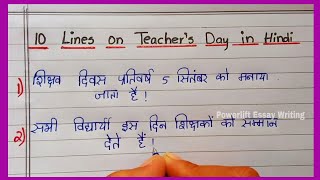 10 Lines on Teacher's Day in Hindi
1) शिक्षक दिवस प्रतिवर्ष 5 सितंबर को मनाया
जाता है!
Powerlift Essay Writing
2) सभी विद्यार्थी इस दिन शिक्षकों को सम्मान
देते हैं!